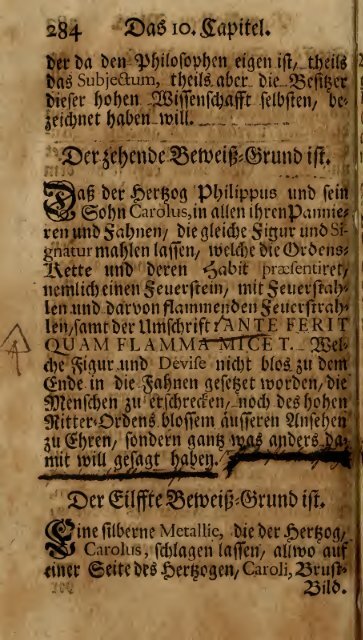 284 Das 10. Capitel.
der da den Philosophen eigen ist, theils
das Subjectum, theils aber die Besitzer
dieser hohen Wissenschafft selbsten, be-
zeichnet haben will.
Der zehende Beweiß-Grund ist.
Daß der Hertzog Philippus und sein
Sohn Carolus, in allen ihren Pannie-
ren und Fahnen, die gleiche Figur und Si-
gnatur mahlen lassen, welche die Ordens-
Kette und deren Habit præsentiret,
nemlich einen Feuerstein, mit Feuerstah-
len und darvon flammenden Feuerstrah-
len, samt der Umschrift: ANTE FERIT
QUAM FLAMMA MICET. Wel-
che Figur und Devise nicht blos zu dem
Ende in die Fahnen gesetzet worden, die
Menschen zu erschrecken, noch des hohen
Ritter-Ordens blossem äusseren Ansehen
zu Ehren, sondern gantz was anders da-
mit will gesagt haben.
Der Eilffte Beweiß-Grund ist.
Eine silberne Metallie, die der Hertzog,
Carolus, schlagen lassen, allwo auf
einer Seite des Hertzogen, Caroli, Brust-
Bild.